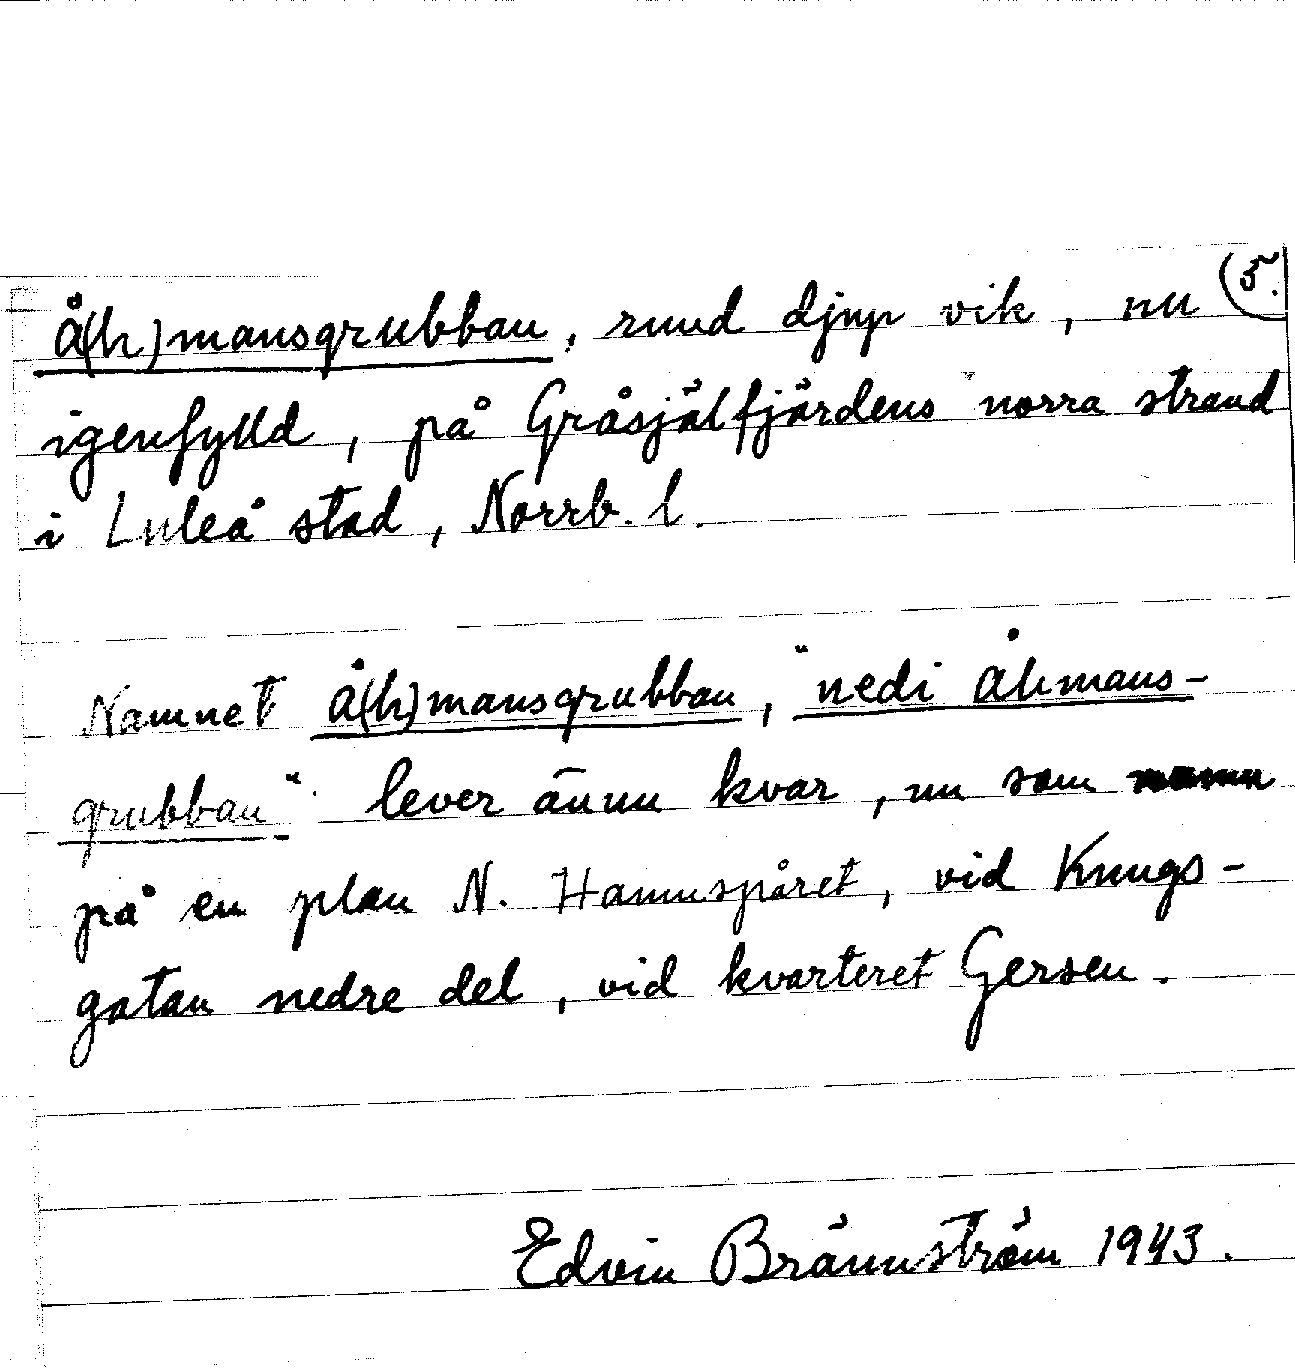 5.
Å(h)mansgrubban, rund djup vik, nu
igenfylld, på Gråsjälfjärdens norra strand
i Luleå stad, Norrb. l.
Namnet Å(h)mansgrubban, "nedi Åhmans-
grubban" lever ännu kvar, nu som namn
på en plan N. Hamnspåret, vid Kungs-
gatan nedre del, vid kvarteret Gersen.
Edvin Brännström 1943.